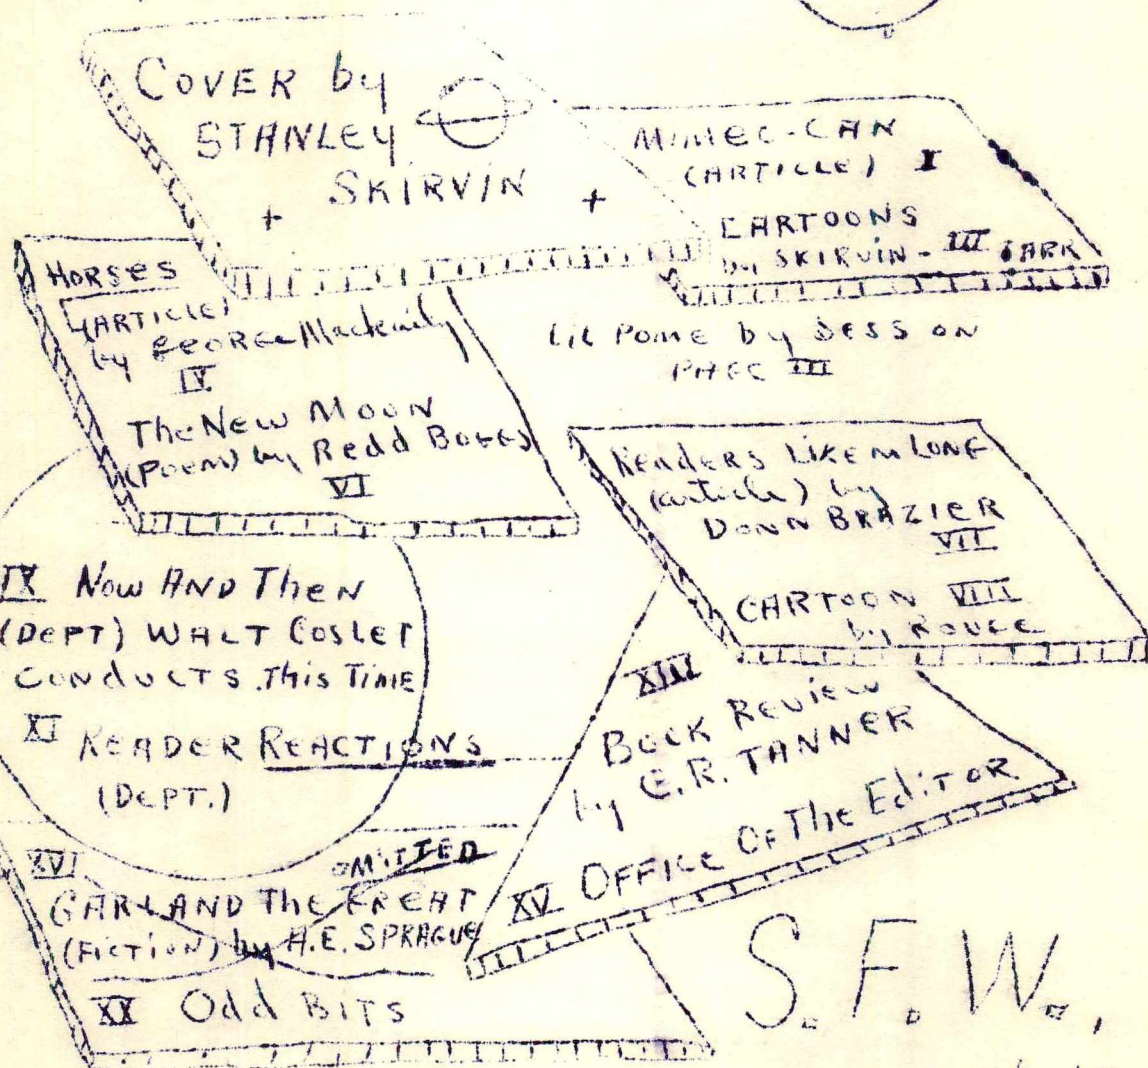 COVER by
STANLEY
SKIRVIN
MIMEO-CAN
(ARTICLE) I
CARTOONS
by SKIRVIN - III
HORSES
(ARTICLE)
by GEORGE
IV
The NEW MOON
(POEM) by Redd BOGGS
VI
Lil POME by JESS ON
PAGE III
READERS LIKE M LONG
(article) by
DONN BRAZIER
VII
CARTOON VIII
by
IX NOW AND THEN
(DEPT) WALT COSLET
CONDUCTS THIS TIME
XI READER REACTIONS
(DEPT.)
XIII
BOOK REVIEW
by C.R. TANNER
XV OFFICE OF THE EDITOR
XVI OMITTED
GARLAND THE GREAT
(FICTION) by H.E. SPRAGUE
XX Odd BITS
S.F.W.,